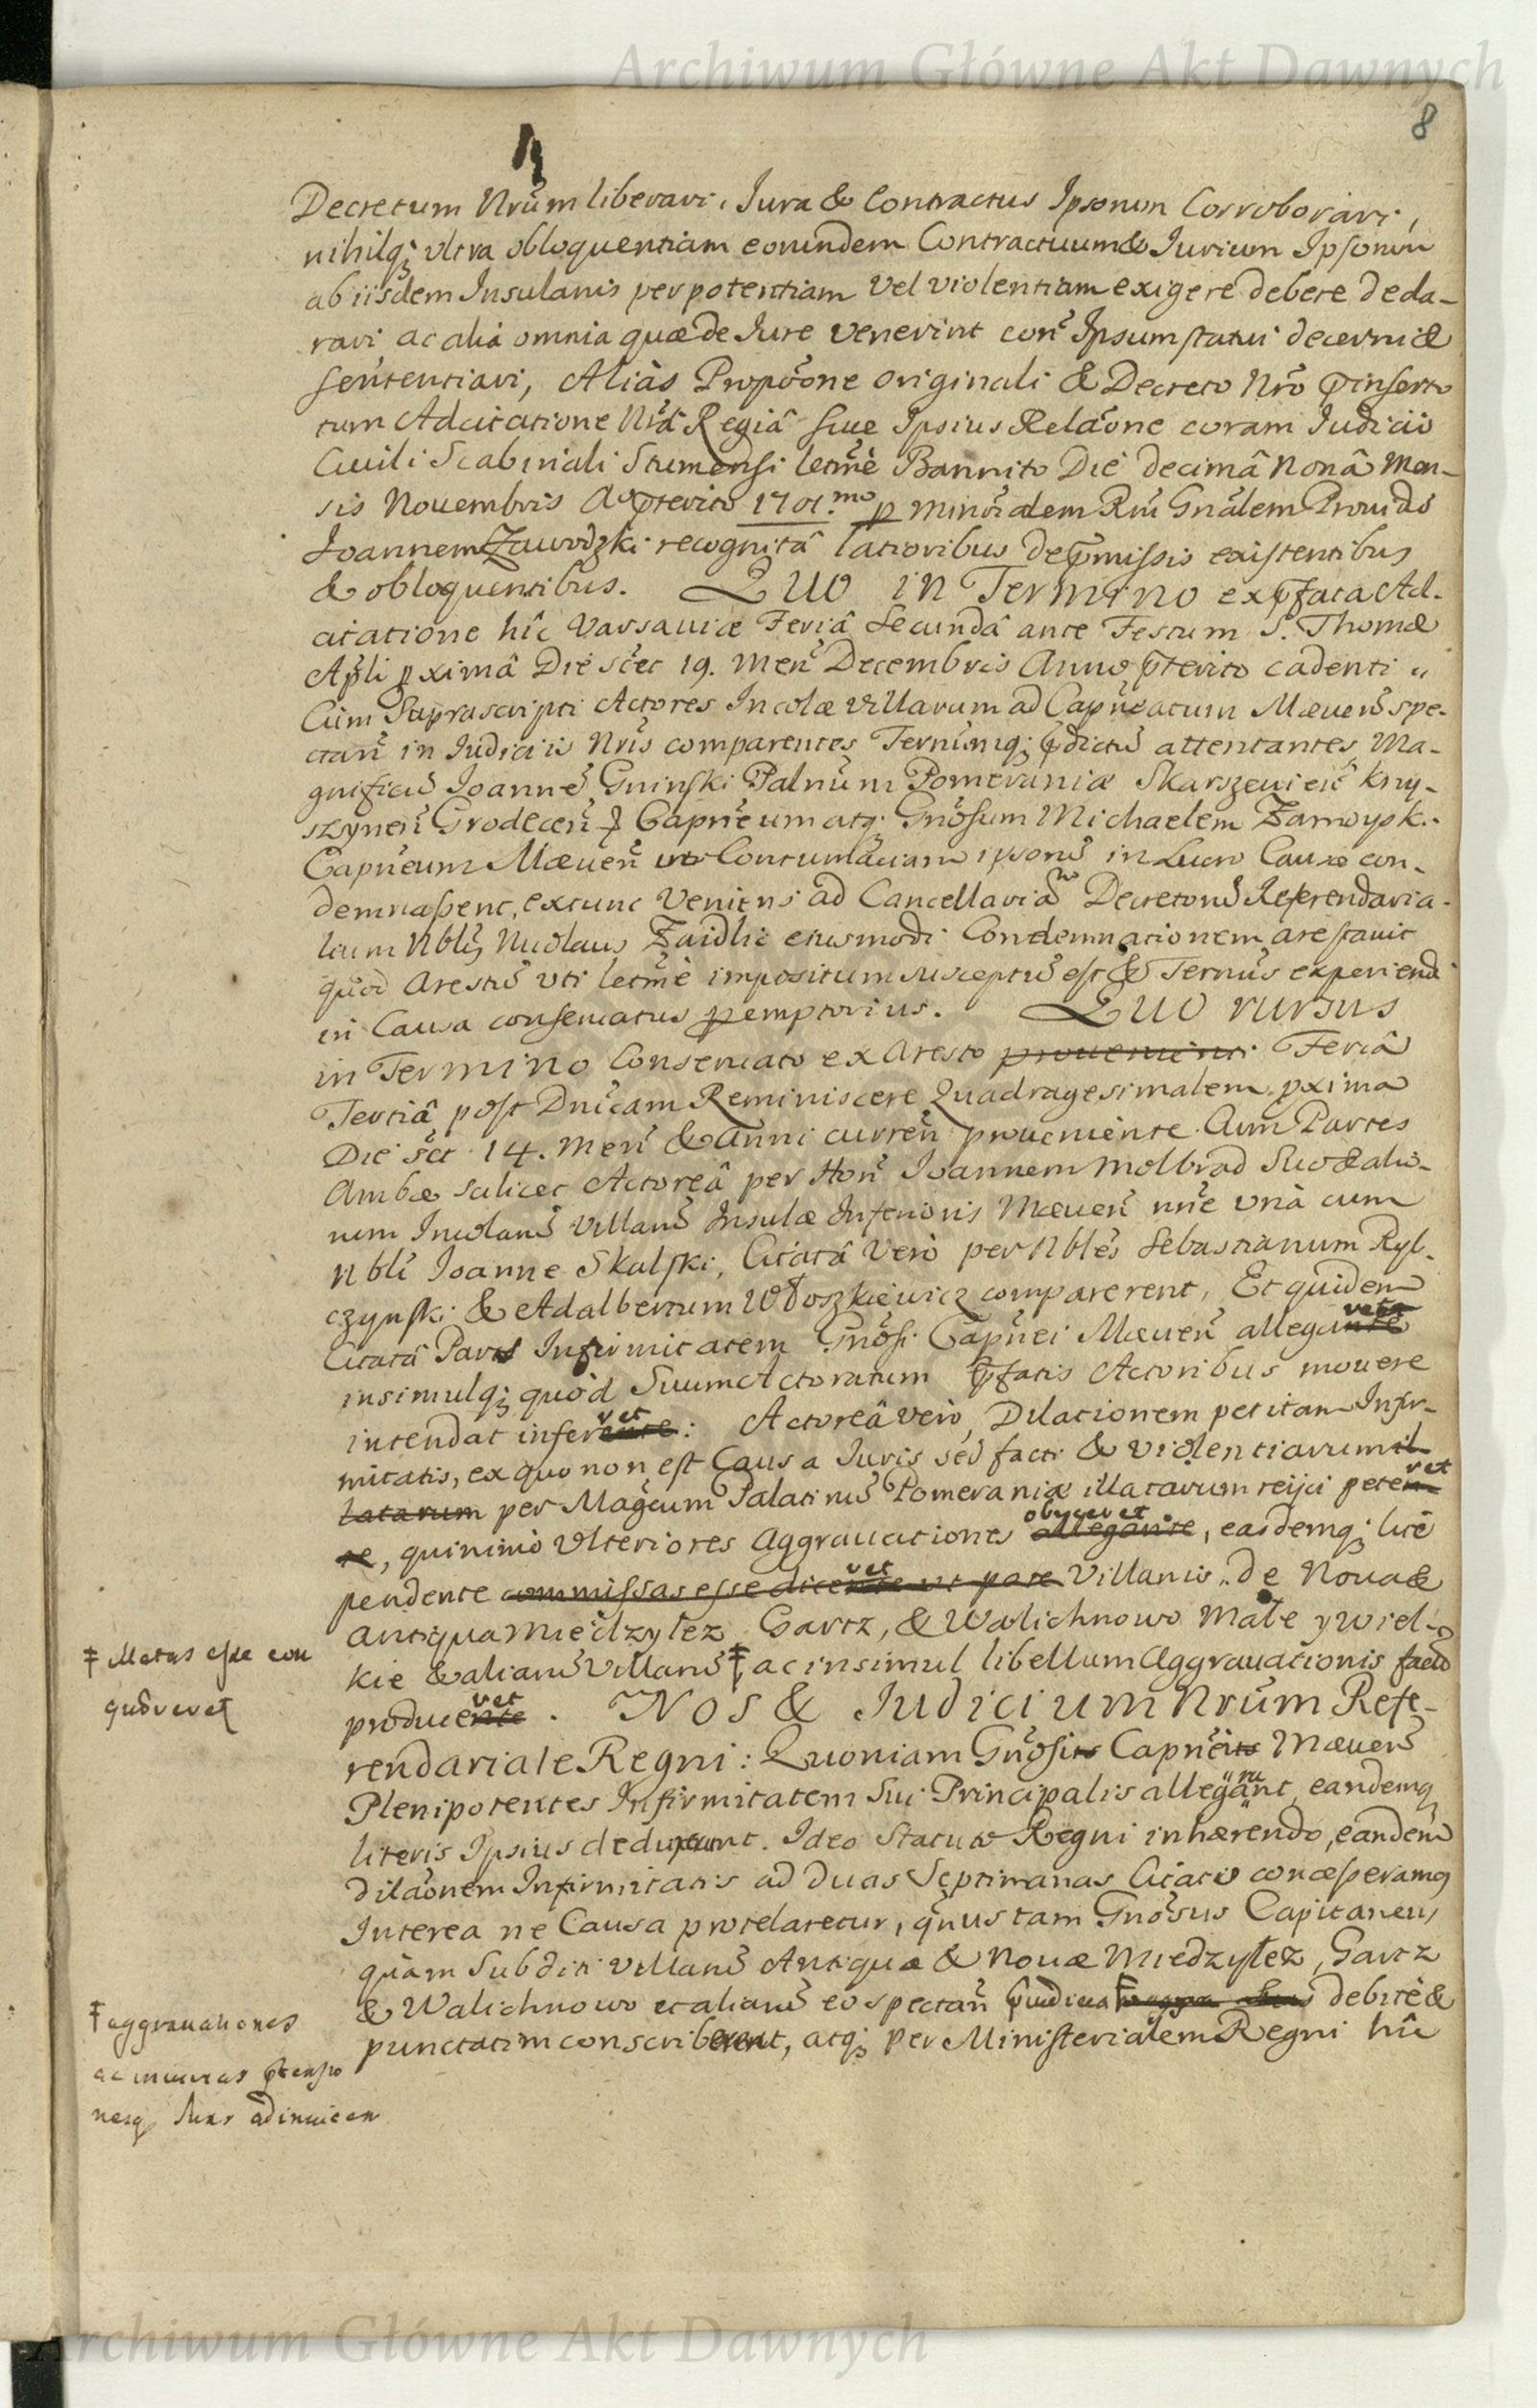 Archiwum Główne Akt Dawnych
8
Decretum Nrũm liberari, Jura & Contractus Ipsorum Corroborari,
nihilqȝ vltra obloquentiam eorundem Contractuum & Jurium Ipsorum
ab iisdem Insulanis per potentiam vel violentiam exigere debere decla-
rari ac alia omnia quæ de Jure venerint con̄ Ipsum statui decerni &
sententiari, Aliàs Propõone originali & Decreto Nrõ p̄inserto
tum Adcitatione Nrâ Regiâ siue Ipsius Relãone coram Judicio
Ciuili Scabinali Stumensi letm̃è Bannito Die decimâ Nonâ Men-
sis Nouembris Ao p̄terito 1701.mo p Minr̃ialem Rni Gnãlem Prouidũ
Joannem Zawodzki recognitâ latioribus de p̄missis existentibus
& obloquentibus. Quo in Termino ex p̄fata Ad-
citatione hîc Varsauiæ Feriâ Secundâ ante Festum S. Thomæ
Apli pximâ Die scet 19. Men̄ Decembris Anno p̄terito cadenti
Cùm Suprascripti Actores Incolæ Villarum ad Capn̄eatum Mæuen̄ spe-
ctan̄ in Judiciis Nris comparentes Ternũmqȝ p̄dictũ attentantes, Ma-
gnificũ Joannẽ Gninski Palnũm Pomeraniæ Skarszeuien̄ kny-
szynen̄ Grodecen̄ Capnẽum atqȝ Gnõsum Michaelem Zamoysk.
Capnẽum Mæuen̄ Contumaciam ipsorũ in Lucro Causæ con-
demnassent, extunc Veniens ad Cancellariam Decretorũ Referendaria-
lium Nbĩs Nicolaus Zaidlic eiusmodi Condemnationem arestauit
quod Arestũ vti letm̃è impositum susceptũ est & Ternũs experiendi
in Causa conseruatus pemptorius. Quo rursus
in Termino Conseruato ex Aresto prouenienti Feriâ
Tertiâ post Dnĩcam Reminiscere Quadragesimalem pxima
Die sc̃t 14. Men̄ & Anni curren̄ proueniente Cum Partes
Ambæ scilicet Actoreâ per Hon̄ Joannem Molbrad Suo & alio-
rum Incolarũ Villarũ Insulæ Inferioris Mæuen̄ nñe vnà cum
Nbli Joanne Skalski, Citatâ Verò per Nblẽs Sebastianum Ryl-
czynski & Adalbertum Włoszkiewicz comparerent, Et quidem
Citatâ Pars Infirmitatem Gnõsi Capnẽi Mæuen̄ allegaret
insimulqȝ quòd Suum Actoratum p̄fatis Actoribus mouere
intendat inferret: Actoreâ verò, Dilationem petitam Infir-
mitatis, ex quo non est Causa Juris sed facti & violentiarum il-
latarum per Magcũm Palatinũ Pomeraniæ illatarum reijci peteret
te, quinimò Vlteriores Aggrauationes obyceret allegante, easdemqȝ lite
pendente commissas esse dicente vt pote Villanis de Noua &
Antiqua Miedzyłez Gartz, & Walichnowo Małe y wiel-
kie & aliarũ Villarũ ‡ ac insimul libellum Aggrauationis factũ
produceret. Nos & Judicium Nrũm Refe-
rendariale Regni: Quoniam Gnõsi Capnẽi Mæuen̄
Plenipotentes Infirmitatem Sui Principalis allegarunt, eandemqȝ
literis Ipsius deduxerunt. Ideo Statuto Regni inhærendo, eandem
dilãonem Infirmitatis ad duas Septimanas Citato concesseramꝯ
Interea ne Causa protelaretur, qñus tam Gnõsus Capitaneus
quàm Subditi Villarũ Antiquæ & Nouæ Miedzyłez, Gartz
& Walichnowo et aliarũ eo spectan̄ debitè &
punctatim conscriberent, atqȝ per Ministerialem Regni hîc
‡ illatas esse con
quõreret
‡ aggrauationes
ac iniurias p̄tensio
nesqȝ suas adinuicem
Archiwum Główne Akt Dawnych